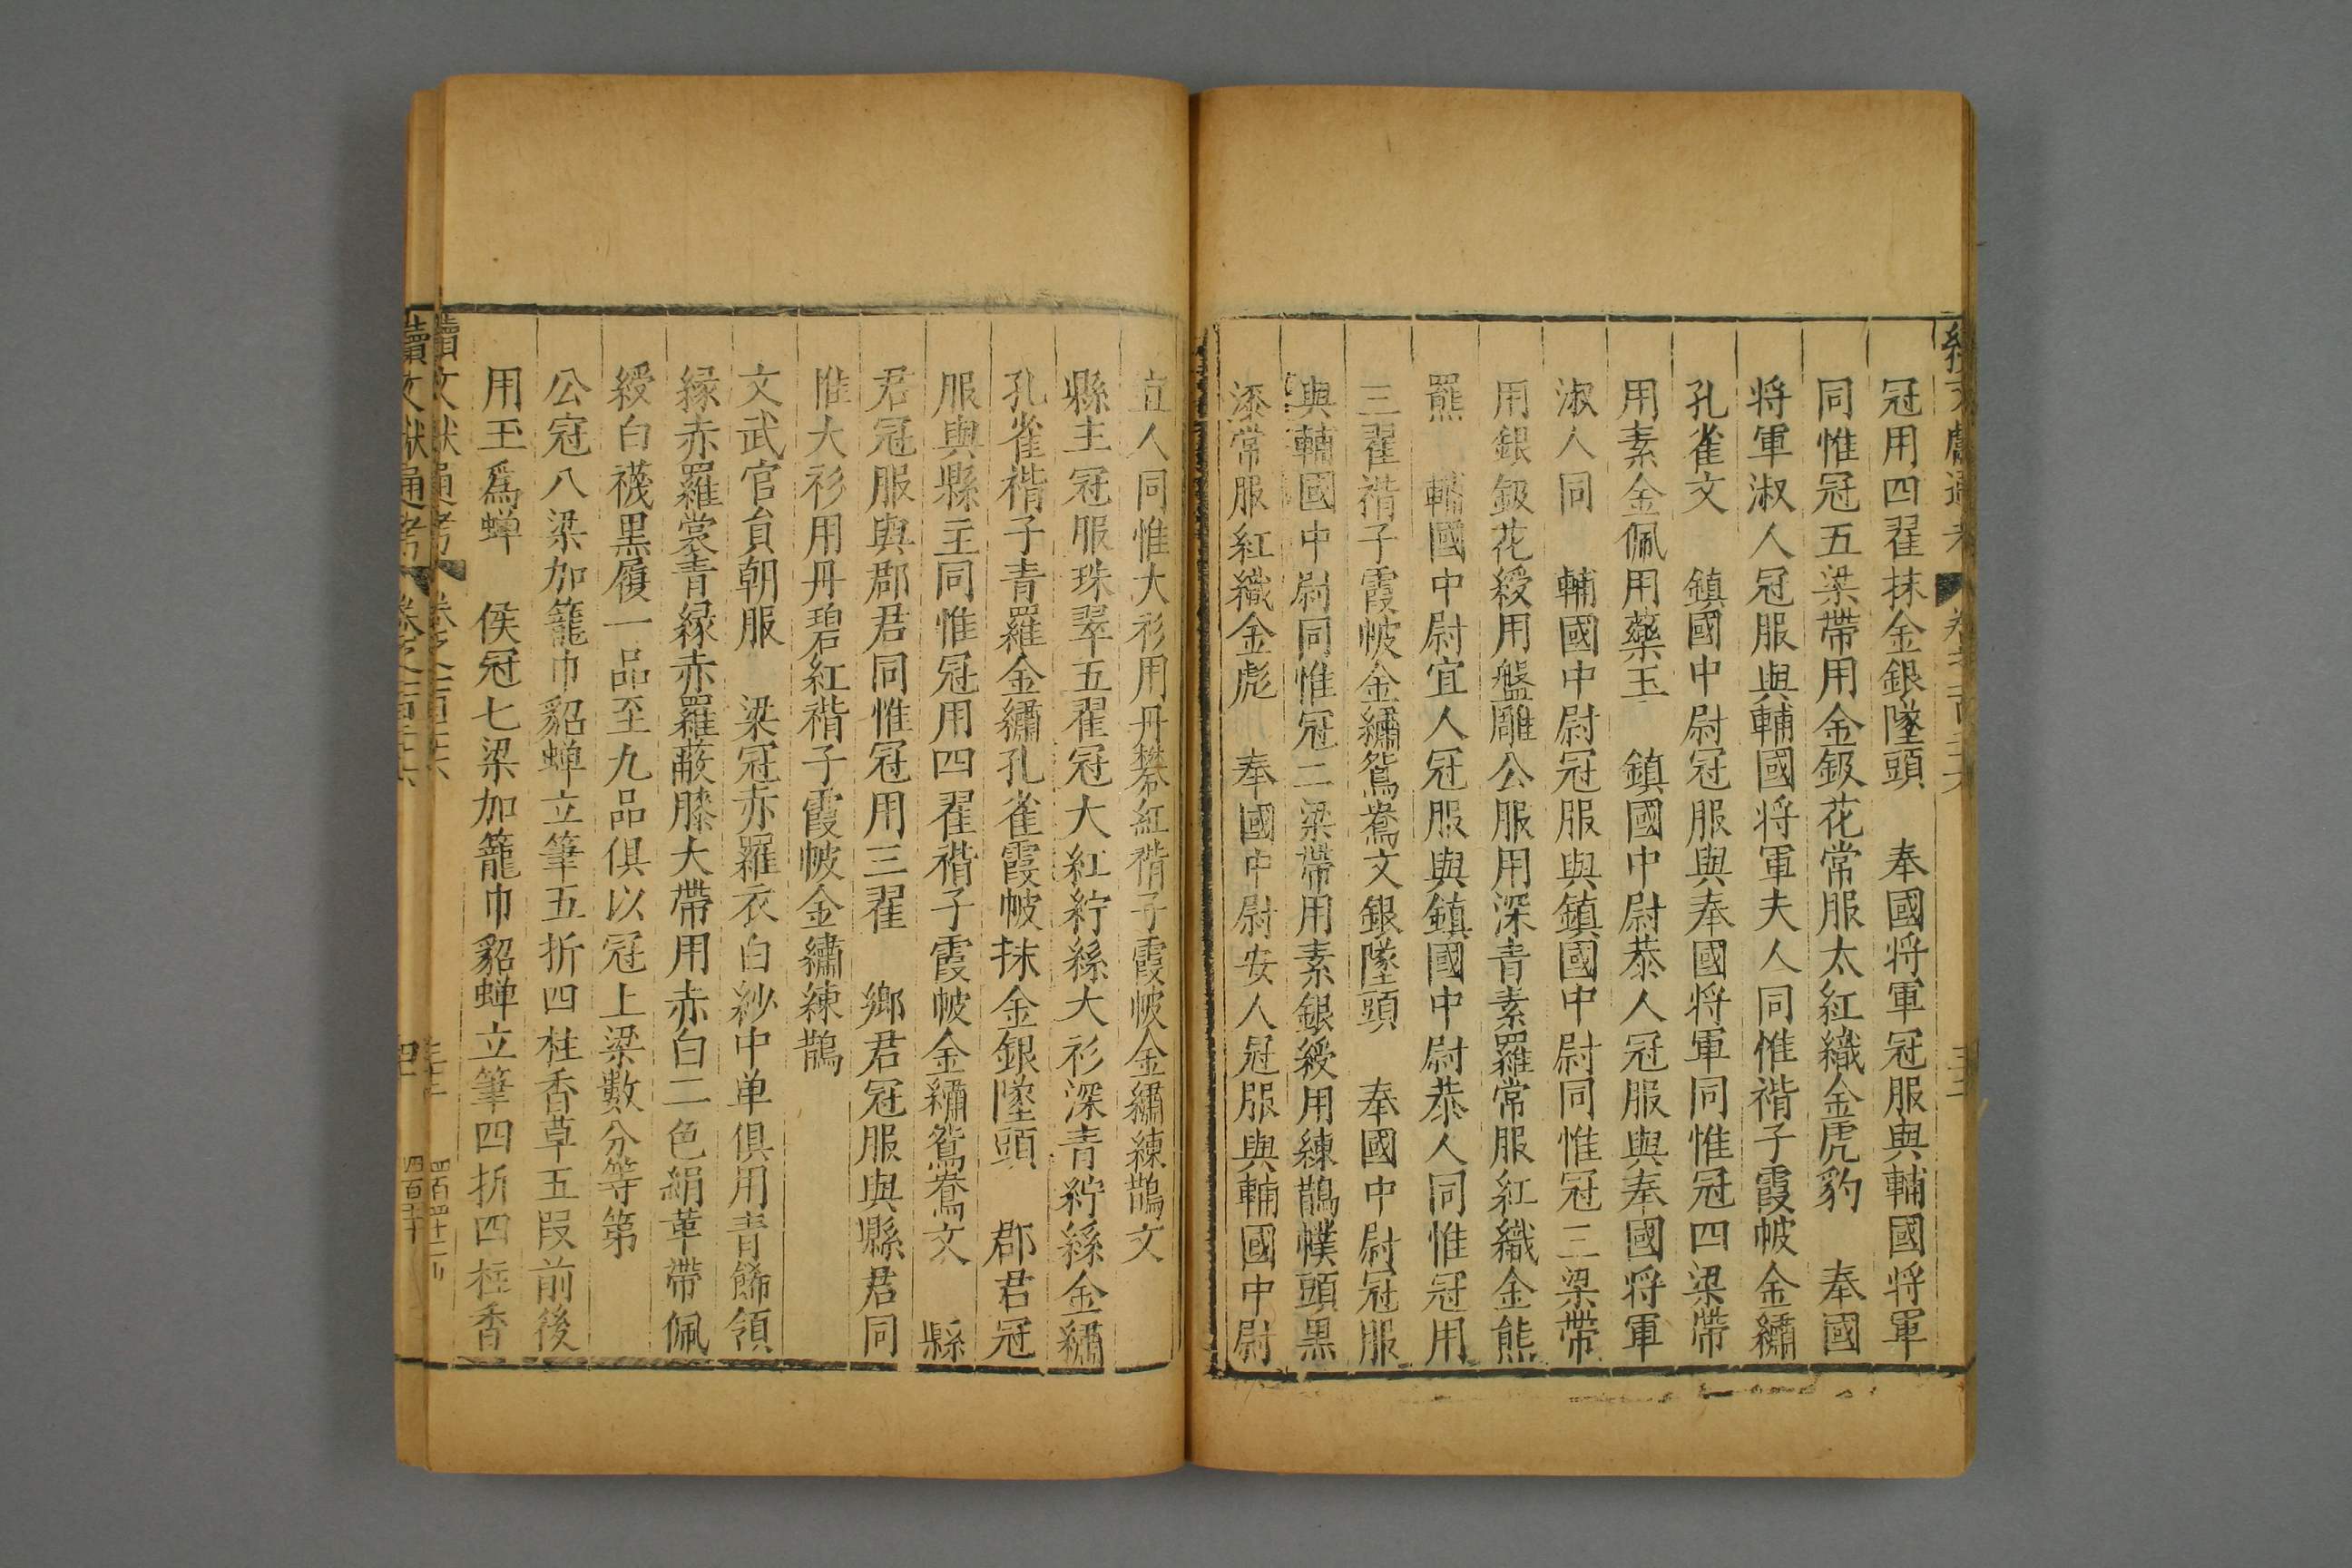 冠用四翟抹金銀墜頭　奉國将軍冠服與輔國将軍
同惟冠五梁帶用金鈒花常服大紅織金虎豹　奉國
将軍淑人冠服與輔國将軍夫人同惟褙子霞帔金繡
孔雀文　鎮國中尉冠服與奉國将軍同惟冠四梁帶
用素金佩用藥玉　鎮國中尉恭人冠服與奉國将軍
淑人同　輔國中尉冠服與鎮國中尉同惟冠三梁帶
用銀鈒花綬用盤雕公服用深青素羅常服紅織金熊
羆　輔國中尉宜人冠服與鎮國中尉恭人同惟冠用
三翟褙子霞帔金繡鴛鴦文銀墜頭　奉國中尉冠服
與輔國中尉同惟冠二梁帶用素銀綬用練鵲幞頭黒
漆常服紅織金彪　奉國中尉安人冠服與輔國中尉
宜人同惟大衫用丹礬紅褙子霞帔金繡練鵲文
縣主冠服珠翠五翟冠大紅紵絲大衫深青紵絲金繡
孔雀褙子青羅金繡孔雀霞帔抹金銀墜頭　郡君冠
服與縣主同惟冠用四翟褙子霞帔金繡鴛鴦文　縣
君冠服與郡君同惟冠用三翟　鄉君冠服與縣君同
惟大衫用丹碧紅褙子霞帔金繡練鵲
文武官員朝服　梁冠赤羅衣白紗中单俱用青飾領
縁赤羅裳青縁赤羅蔽膝大帶用赤白二色絹革帶佩
綬白襪黒履一品至九品俱以冠上梁數分等第
公冠八梁加籠巾貂蝉立筆五折四柱香草五段前後
用玉爲蝉　侯冠七梁加籠巾貂蝉立筆四折四柱香
續文獻通考
續文獻通考